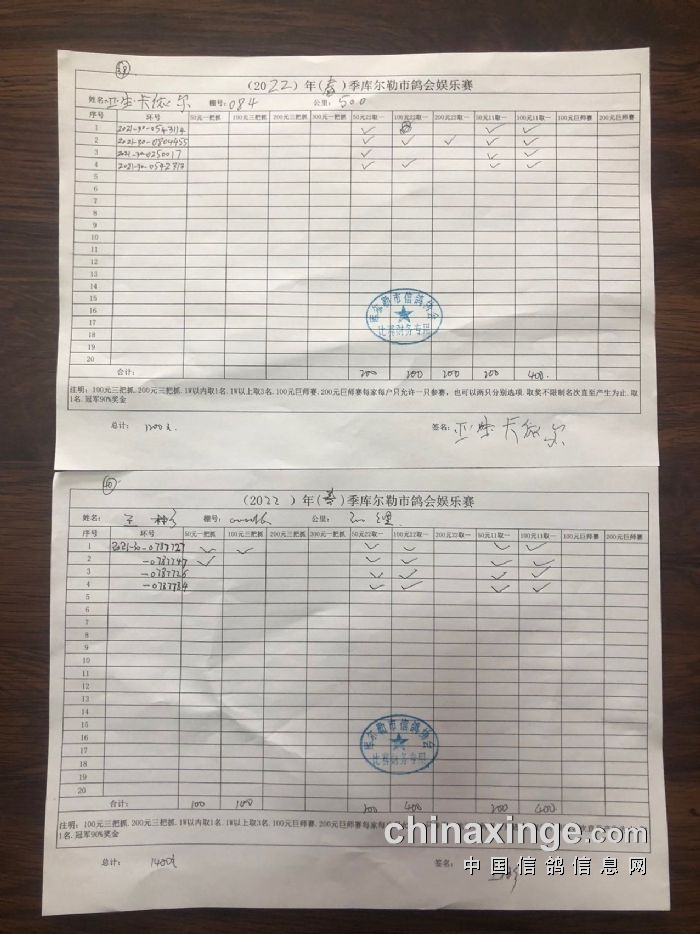 38
(2022)年(春)季库尔勒市鸽会娱乐赛
姓名: 棚号:084 公里:500
序号 环号 50元一把抓 100元三把抓 200元三把抓 300元一把抓 50元22取一 100元22取一 200元22取一 50元11取一 100元11取一 100元巨师赛 200元巨师赛
1 2021-30-0543114 ✓ ✓ ✓
2 2021-30-0804455 ✓ ✓ ✓ ✓ ✓
3 2021-30-0250017 ✓ ✓ ✓
4 2021-30-0542313 ✓ ✓ ✓ ✓
5
6
7
8
9
10
11
12
13
14
15
16
17
18
19
20
库尔勒市信鸽协会
比赛财务专用
合计: 200 200 200 200 400
注明:100元三把抓.200元三把抓.1W以内取1名.1W以上取3名.100元巨师赛.200元巨师赛每家每户只允许一只参赛,也可以两只分别选项.取奖不限制名次直至产生为止.取
1名.冠军90%奖金
总计: 1200元 签名:
(2022)年(春)季库尔勒市鸽会娱乐赛
姓名: 棚号: 公里:
序号 环号 50元一把抓 100元三把抓 200元三把抓 300元一把抓 50元22取一 100元22取一 200元22取一 50元11取一 100元11取一 100元巨师赛 200元巨师赛
1 2021-30-0787727 ✓ ✓ ✓ ✓ ✓ ✓
2 -0787747 ✓ ✓ ✓ ✓ ✓
3 -0787726 ✓ ✓ ✓ ✓
4 -0787784 ✓ ✓ ✓ ✓
5
6
7
8
9
10
11
12
13
14
15
16
17
18
19
20
库尔勒市信鸽协会
比赛财务专用
合计: 100 100 200 400 200 400
注明:100元三把抓.200元三把抓.1W以内取1名.1W以上取3名.100元巨师赛.200元巨师赛每家每户
1名.冠军90%奖金
总计: 1400元 签名:
chinaxinge.com
中国信鸽信息网